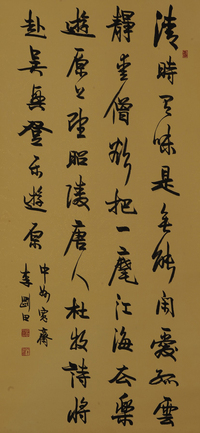 清時有味是無能閑愛孤雲
靜愛僧欲把一麾江海去樂
遊原上望昭陵唐人杜牧詩將
赴吳興登乐遊原
中州 齋
李剛田